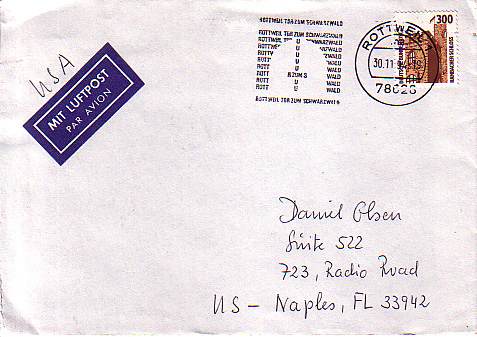 ROTTWEIL TOR ZUM SCHWARZWALD
ROTTWEIL TOR ZUM SCHWARZWALD
ROTTWEIL U SCHWARZWALD
ROTTWE U WARZWALD
ROTT U WALD
ROTT U WALD
ROTT R ZUM S WALD
ROTT U WALD
ROTT U WALD
ROTTWEIL TOR ZUM SCHWARZWALD
ROTTWEIL 1
30.11
78628
300
RAMBACHER SCHLOSS
USA
MIT LUFTPOST
PAR AVION
Daniel Olsen
Suite 522
723, Radio Road
US - Naples, FL 33942